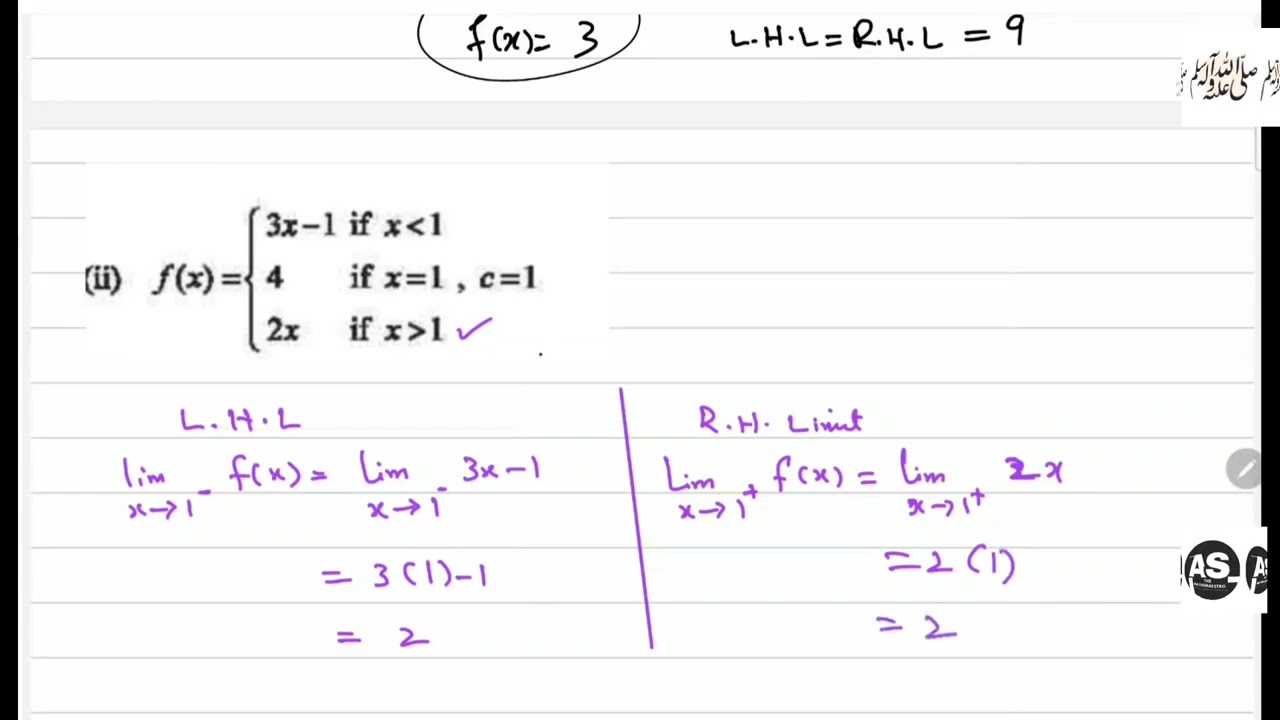 f(x)= 3 L.H.L = R.H.L = 9
صلى الله عليه وآله وسلم
3x−1 if x<1
(ii) f(x)={ 4 if x=1 , c=1
2x if x>1 ✓
L.H.L
lim x→1⁻ f(x) = Lim x→1⁻ 3x−1
= 3(1)−1
= 2
R.H. Limit
Lim x→1⁺ f(x) = Lim x→1⁺ 2x
= 2(1)
= 2
AS